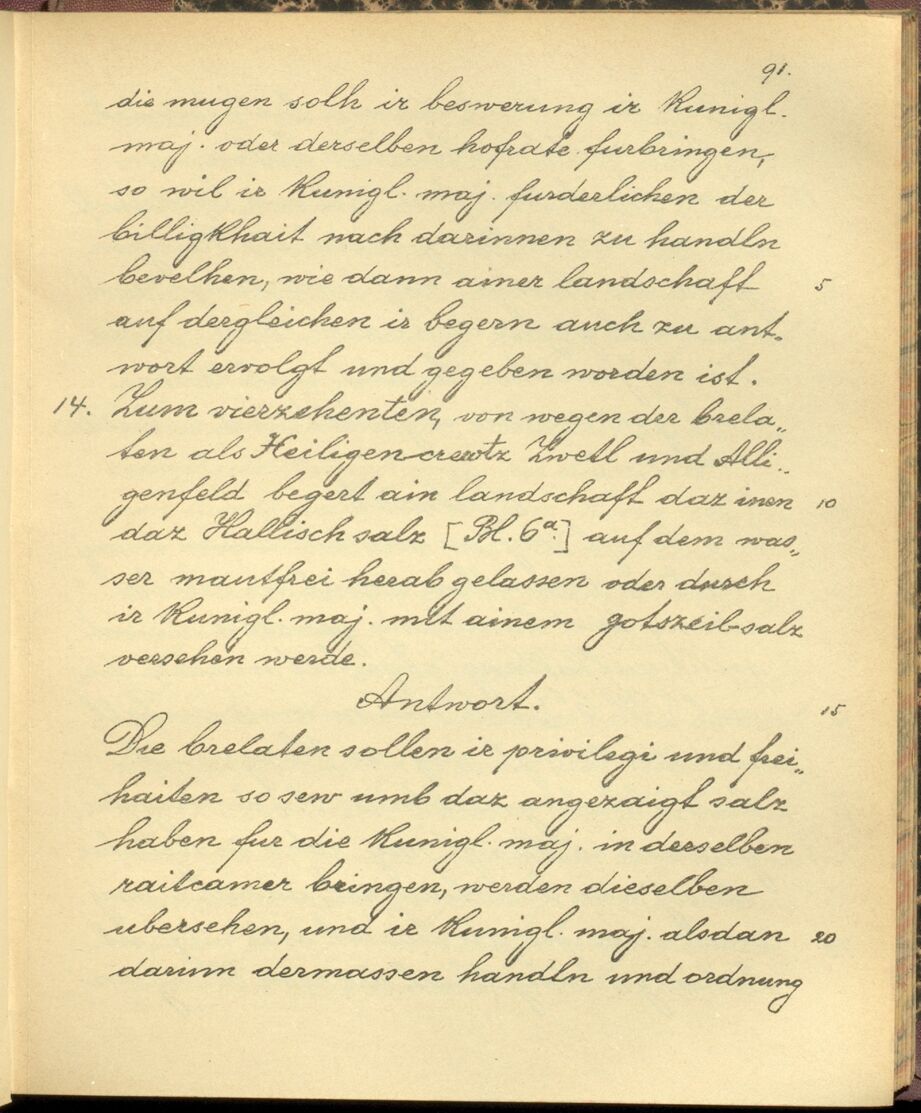 91.
die mugen solh ir beswerung ir Kunigl.
maj. oder derselben hofrate furbringen,
so wil ir Kunigl. maj. furderlichen der
billigkhait nach darinnen zu handln
bevelhen, wie dann ainer landschaft 5
auf dergleichen ir begern auch zu ant„
wort ervolgt und gegeben worden ist.
14. Zum vierzehenten, von wegen der brela„
ten als Heiligencrewtz Zwetl und Alli„
genfeld begert ain landschaft daz inen 10
daz Hallisch salz [Bl. 6a.] auf dem was„
ser mautfrei herab gelassen oder durch
ir Kunigl. maj. mit ainem gotszeil-salz
versehen werde.
Antwort. 15
Die brelaten sollen ir privilegi und frei„
haiten so sew umb daz angezaigt salz
haben fur die Kunigl. maj. in derselben
raitcamer bringen, werden dieselben
ubersehen, und ir Kunigl. maj. alsdan 20
darinn dermassen handln und ordnung